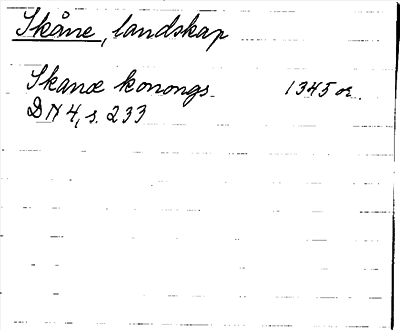 Skåne, landskap
Skanæ konongs 1345 or.
DN 4, s. 233